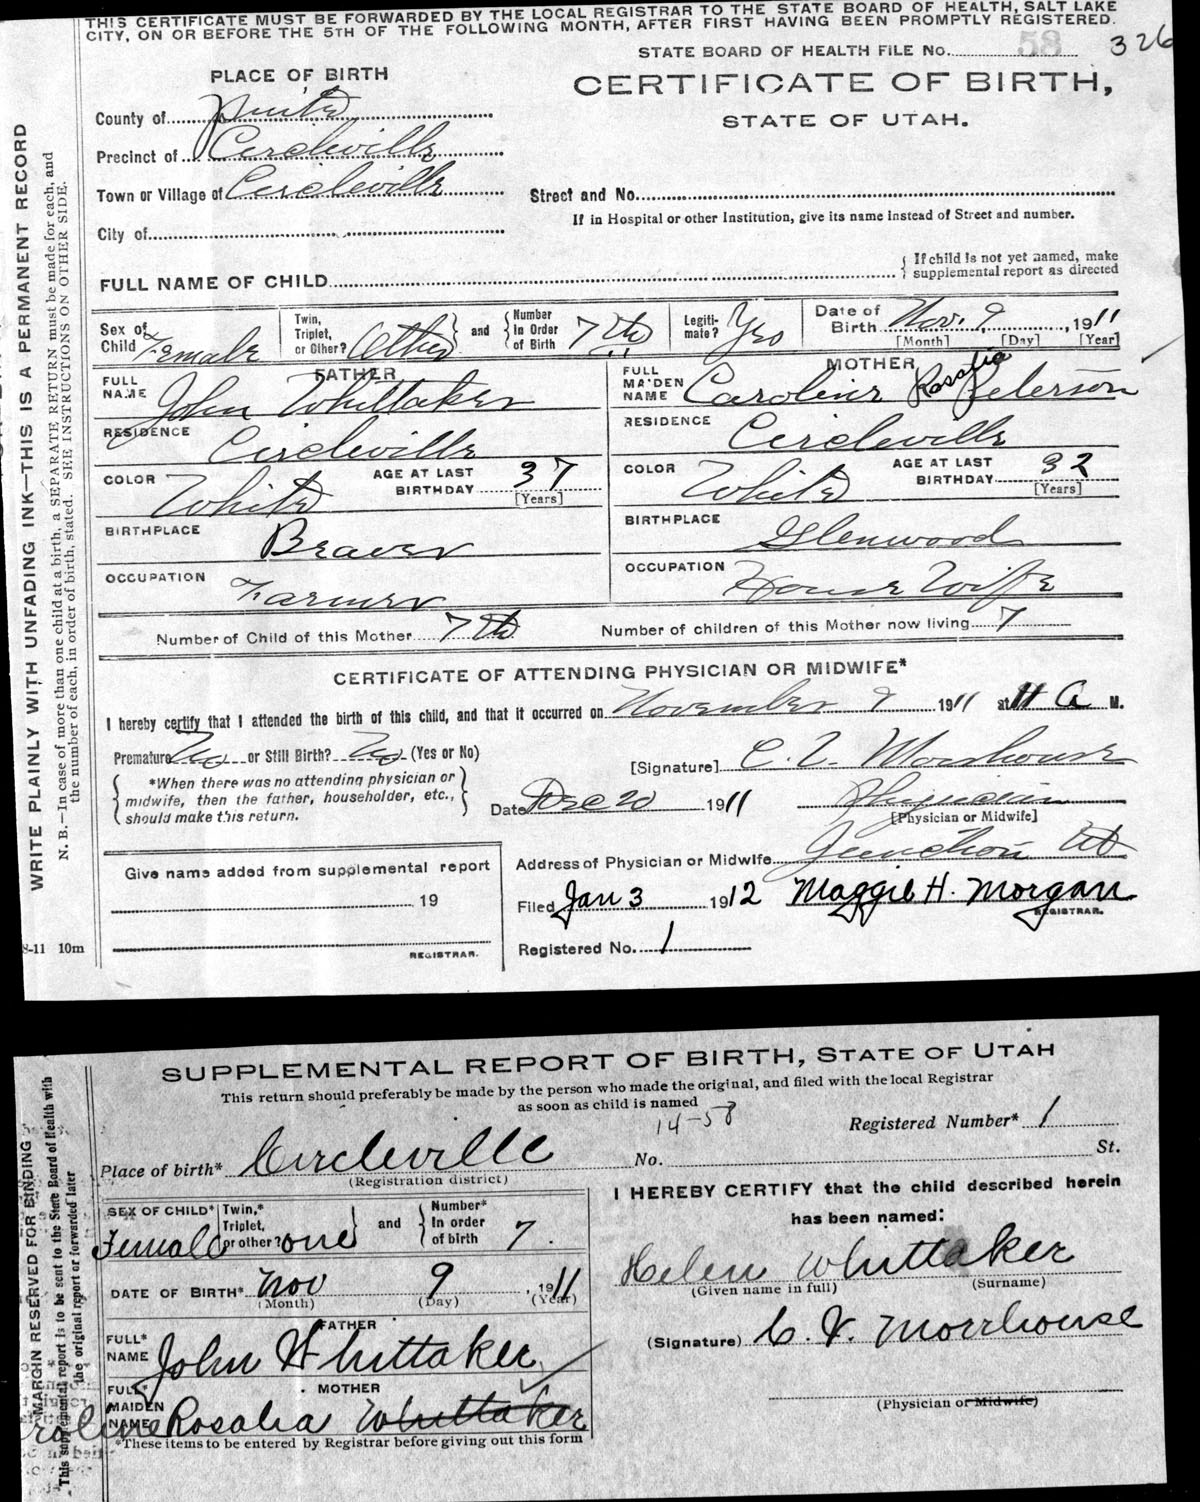 THIS CERTIFICATE MUST BE FORWARDED BY THE LOCAL REGISTRAR TO THE STATE BOARD OF HEALTH, SALT LAKE
CITY, ON OR BEFORE THE 5TH OF THE FOLLOWING MONTH, AFTER FIRST HAVING BEEN PROMPTLY REGISTERED.
STATE BOARD OF HEALTH FILE No. 58 326
PLACE OF BIRTH
CERTIFICATE OF BIRTH,
STATE OF UTAH.
County of Piute
Precinct of Circleville
Town or Village of Circleville
Street and No.
If in Hospital or other Institution, give its name instead of Street and number.
City of
FULL NAME OF CHILD
{ If child is not yet named, make
supplemental report as directed
Sex of Child Female
Twin, Triplet, or Other? Other } and { Number In Order of Birth 7th
Legiti-mate? Yes
Date of Birth Nov. 9, 1911
[Month] [Day] [Year]
FATHER
FULL NAME John Whittaker
RESIDENCE Circleville
COLOR White
AGE AT LAST BIRTHDAY 37
[Years]
BIRTHPLACE Beaver
OCCUPATION Farmer
MOTHER
FULL MAIDEN NAME Caroline Rosalia Peterson
RESIDENCE Circleville
COLOR White
AGE AT LAST BIRTHDAY 32
[Years]
BIRTHPLACE Glenwood
OCCUPATION House Wife
Number of Child of this Mother 7th
Number of children of this Mother now living 7
CERTIFICATE OF ATTENDING PHYSICIAN OR MIDWIFE*
I hereby certify that I attended the birth of this child, and that it occurred on November 9 1911 at 11 A M.
Premature No or Still Birth? No (Yes or No)
*When there was no attending physician or
midwife, then the father, householder, etc.,
should make this return.
[Signature] C. V. Morrhouse
Date Dec 20 1911
Physician
[Physician or Midwife]
Address of Physician or Midwife Junction Ut
Filed Jan 3 1912 Maggie H. Morgan
REGISTRAR.
Registered No. 1
Give name added from supplemental report
19
REGISTRAR.
8-11 10m
WRITE PLAINLY WITH UNFADING INK—THIS IS A PERMANENT RECORD
N. B.—In case of more than one child at a birth, a SEPARATE RETURN must be made for each, and
the number of each, in order of birth, stated. SEE INSTRUCTIONS ON OTHER SIDE.
SUPPLEMENTAL REPORT OF BIRTH, STATE OF UTAH
This return should preferably be made by the person who made the original, and filed with the local Registrar
as soon as child is named
14-58
Registered Number* 1
Place of birth* Circleville
(Registration district)
No. St.
SEX OF CHILD* Female
Twin,* Triplet, or other? one } and { Number* In order of birth 7.
DATE OF BIRTH* Nov 9, 1911
(Month) (Day) (Year)
FATHER
FULL* NAME John Whittaker
MOTHER
FULL* MAIDEN NAME Caroline Rosalia Whittaker
*These items to be entered by Registrar before giving out this form
I HEREBY CERTIFY that the child described herein
has been named:
Helen Whittaker
(Given name in full) (Surname)
(Signature) C. V. Morrhouse
(Physician or Midwife)
MARGIN RESERVED FOR BINDING
This supplemental report is to be sent to the State Board of Health with
the original report or forwarded later